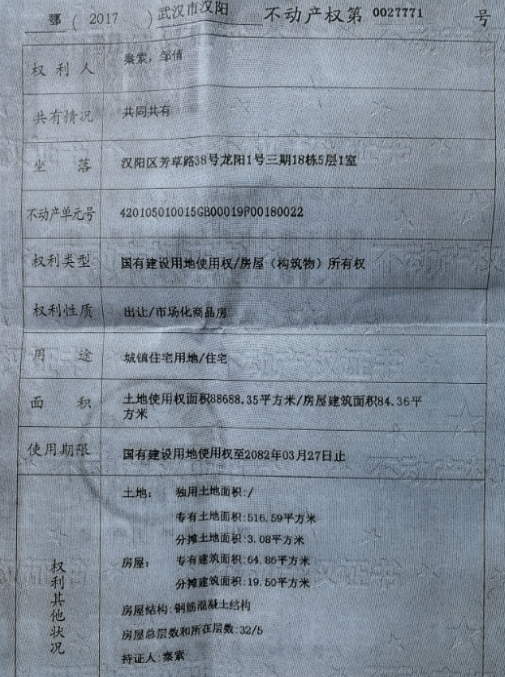 鄂（2017）武汉市汉阳不动产权第0027771号
权利人 秦紫，邹倩
共有情况 共同共有
坐落 汉阳区芳草路38号龙阳1号三期18栋5层1室
不动产单元号 420105010015GB00019P00180022
权利类型 国有建设用地使用权/房屋（构筑物）所有权
权利性质 出让/市场化商品房
用途 城镇住宅用地/住宅
面积 土地使用权面积88688.35平方米/房屋建筑面积84.36平
方米
使用期限 国有建设用地使用权至2082年03月27日止
权利其他状况
土地： 独用土地面积:/
专有土地面积:516.59平方米
分摊土地面积:3.08平方米
房屋： 专有建筑面积:64.86平方米
分摊建筑面积:19.50平方米
房屋结构:钢筋混凝土结构
房屋总层数和所在层数:32/5
持证人:秦紫